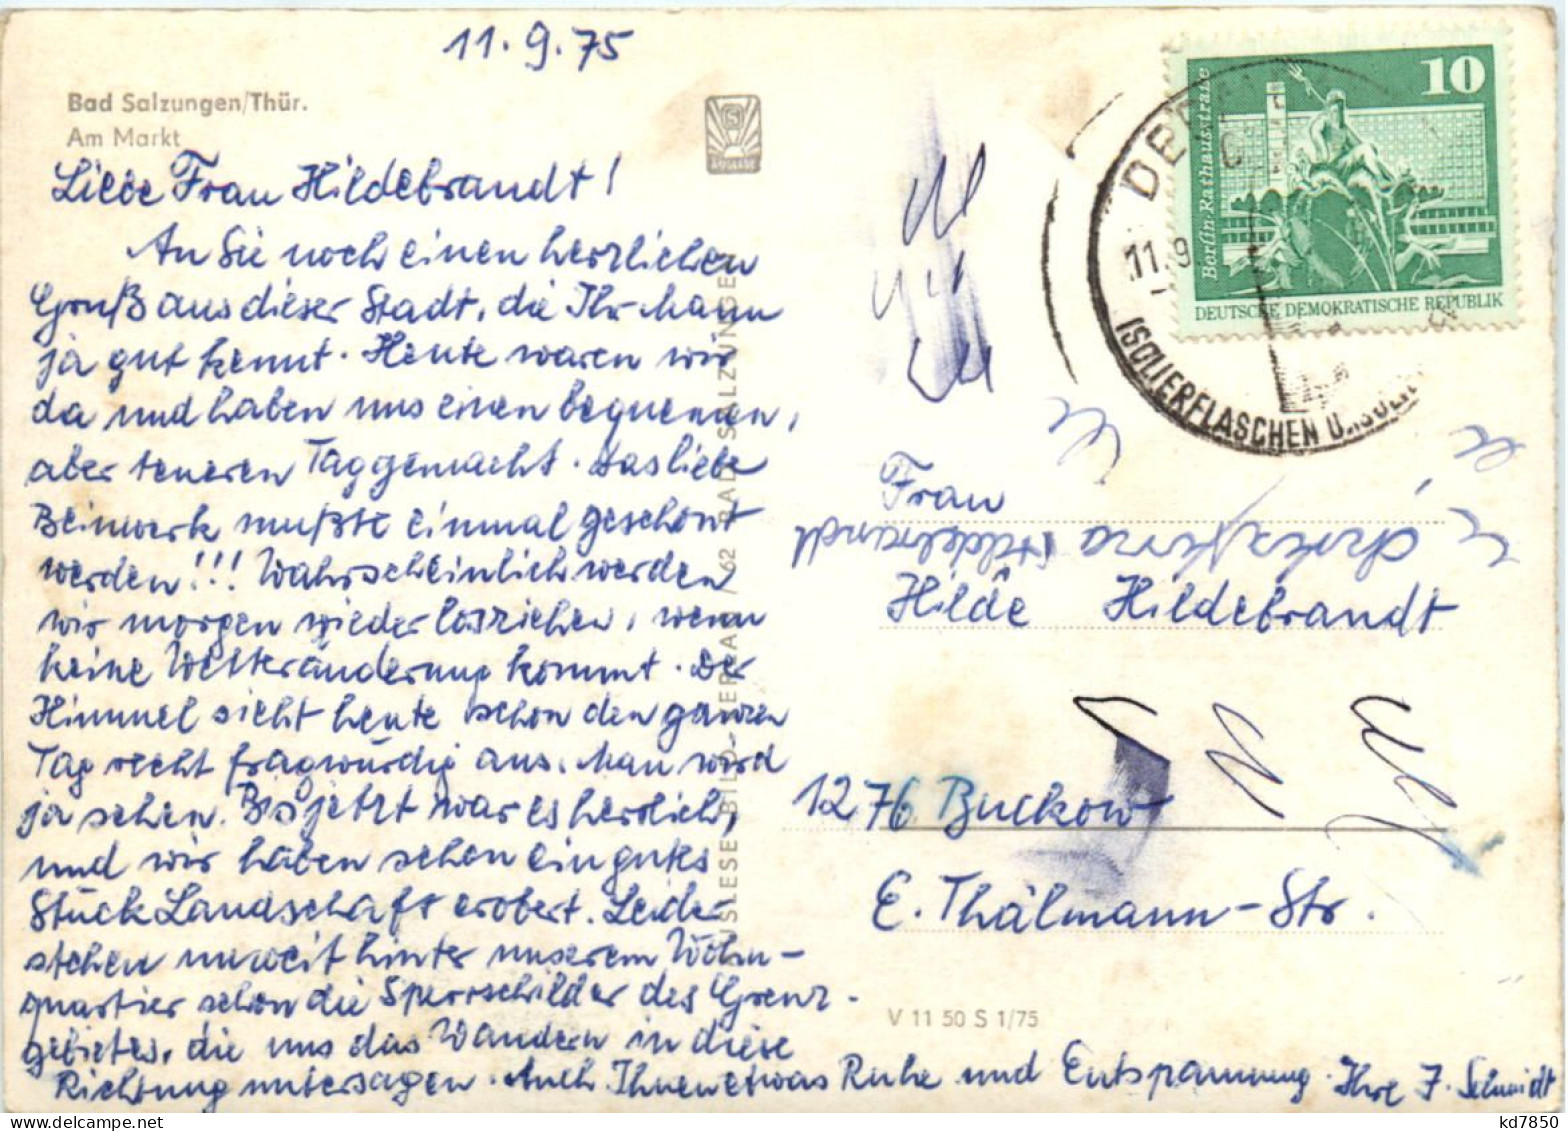 11.9.75
Bad Salzungen/Thür.
Am Markt
Liebe Frau Hildebrandt!
An Sie noch einen herzlichen
Gruß aus dieser Stadt, die Ihr Mann
ja gut kennt. Heute waren wir
da und haben uns einen bequemen,
aber teueren Tag gemacht. Das liebe
Beinwerk mußte einmal geschont
werden!!! Wahrscheinlich werden
wir morgen wieder losziehen, wenn
keine Wetteränderung kommt. Der
Himmel sieht heute schon den ganzen
Tag recht fragwürdig aus. Man wird
ja sehen. Bis jetzt war es herrlich,
und wir haben schon ein gutes
Stück Landschaft erobert. Leider
stehen unweit hinter unserem Wohn-
quartier schon die Sperrschilder des Grenz-
gebietes, die uns das Wandern in diese
Richtung untersagen. Auch Ihnen etwas Ruhe und Entspannung. Ihre J. Schmidt
AUSLESE-BILD-VERLAG /62 BAD SALZUNGEN
10
Berlin-Rathausstraße
DEUTSCHE DEMOKRATISCHE REPUBLIK
11.9
ISOLIERFLASCHEN
Frau
Hildebrandt
Hilde Hildebrandt
1276 Buckow
E. Thälmann-Str.
V 11 50 S 1/75
kd7850